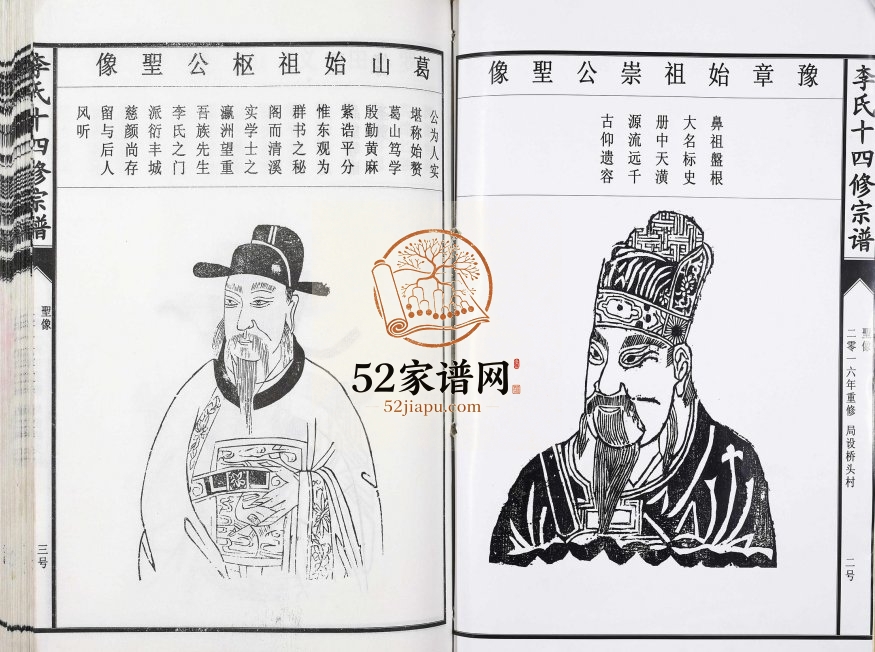 李氏十四修宗谱
聖像
二零一六年重修 局设桥头村
二号
豫章始祖崇公聖像
鼻祖盤根
大名标史
册中天潢
源流远千
古仰遗容
葛山始祖枢公聖像
公为人实
堪称始赘
葛山笃学
殷勤黄麻
紫诰平分
惟东观为
群书之秘
阁而清溪
实学士之
瀛洲望重
吾族先生
李氏之门
派衍丰城
慈颜尚存
留与后人
风听
李氏十四修宗谱
聖像
三号
52家谱网
52jiapu.com